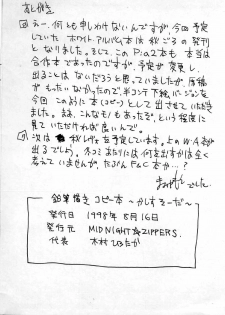 あとがき
え〜、何とも申しわけないんですが、今回予定し
ていたホワイトアルバム本は秋ごろの発刊
となりました。そして、このPia2本も、本当は
合作本であったのですが、予定が変更し
出ることはないだろうと思っていましたが、原稿
がもったいなかったので、
今回このように本(コピー)として出させていただき
ました。まぁ、こんなモノもあったな、という程度に
見ていただければ良いんで。
次は 秋レヴォを予定しています。上のW・A本が
出るでしょう。冬コミあたりには何を出すかは全く
考えていませんが、たぶんF&C本か…?
でした。
鉛筆描き コピー本 〜かしすそーだ〜
発行日 1998年8月16日
発行元 MIDNIGHT☆ZIPPERS.
代表 木村ひろたか